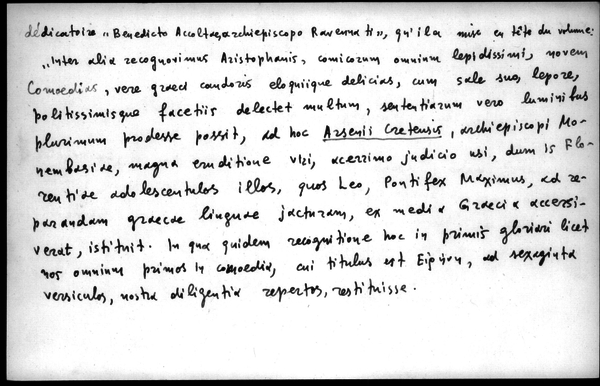 dédicatoire „Benedicto Accoltae, archiepiscopo Ravennati”, qu'il a mise en tête du volume:
„Inter alia recognovimus Aristophanis, comicorum omnium lepidissimi, novem
Comoedias, vere graeci candoris eloquiique delicias, cum sale suo, lepore,
politissimisque facetiis delectet multum, sententiarum vero luminibus
plurimum prodesse possit, ad hoc Arsenii Cretensis, archiepiscopi Mo-
nembasiae, magna eruditione viri, acerrimo judicio usi, dum is Flo-
rentiae adolescentulos illos, quos Leo, Pontifex Maximus, ad re-
parandam graecae linguae jacturam, ex media Graecia accersi-
verat, istituit. In qua quidem recognitione hoc in primis gloriari licet
nos omnium primos in comoedia, cui titulus est Εἰρήνη, ad sexaginta
versiculos, nostra diligentia repertos, restituisse.